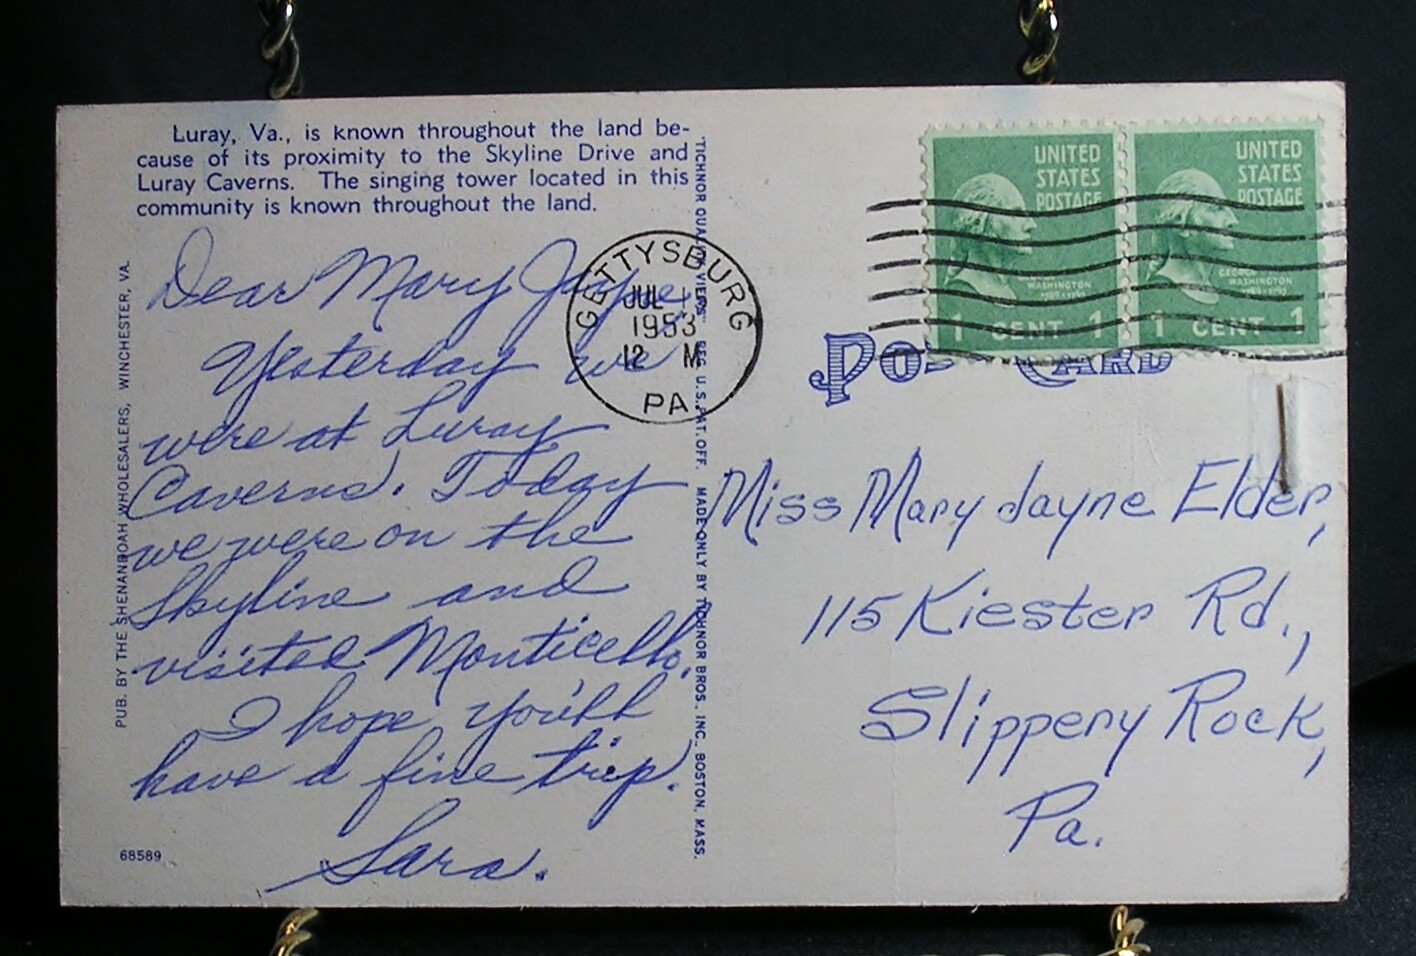 Luray, Va., is known throughout the land be-
cause of its proximity to the Skyline Drive and
Luray Caverns. The singing tower located in this
community is known throughout the land.
Dear Mary Jayne,
Yesterday we
were at Luray
Caverns. Today
we were on the
Skyline and
visited Monticello.
I hope you'll
have a fine trip.
Sara.
68589
PUB. BY THE SHENANDOAH WHOLESALERS, WINCHESTER, VA.
"TICHNOR QUALITY VIEWS" REG. U. S. PAT. OFF. MADE ONLY BY TICHNOR BROS., INC., BOSTON, MASS.
GETTYSBURG
JUL 1
1953
12 M
PA.
UNITED
STATES
POSTAGE
GEORGE
WASHINGTON
1789-1797
1 CENT 1
UNITED
STATES
POSTAGE
GEORGE
WASHINGTON
1789-1797
1 CENT 1
POST CARD
Miss Mary Jayne Elder,
115 Kiester Rd.,
Slippery Rock,
Pa.